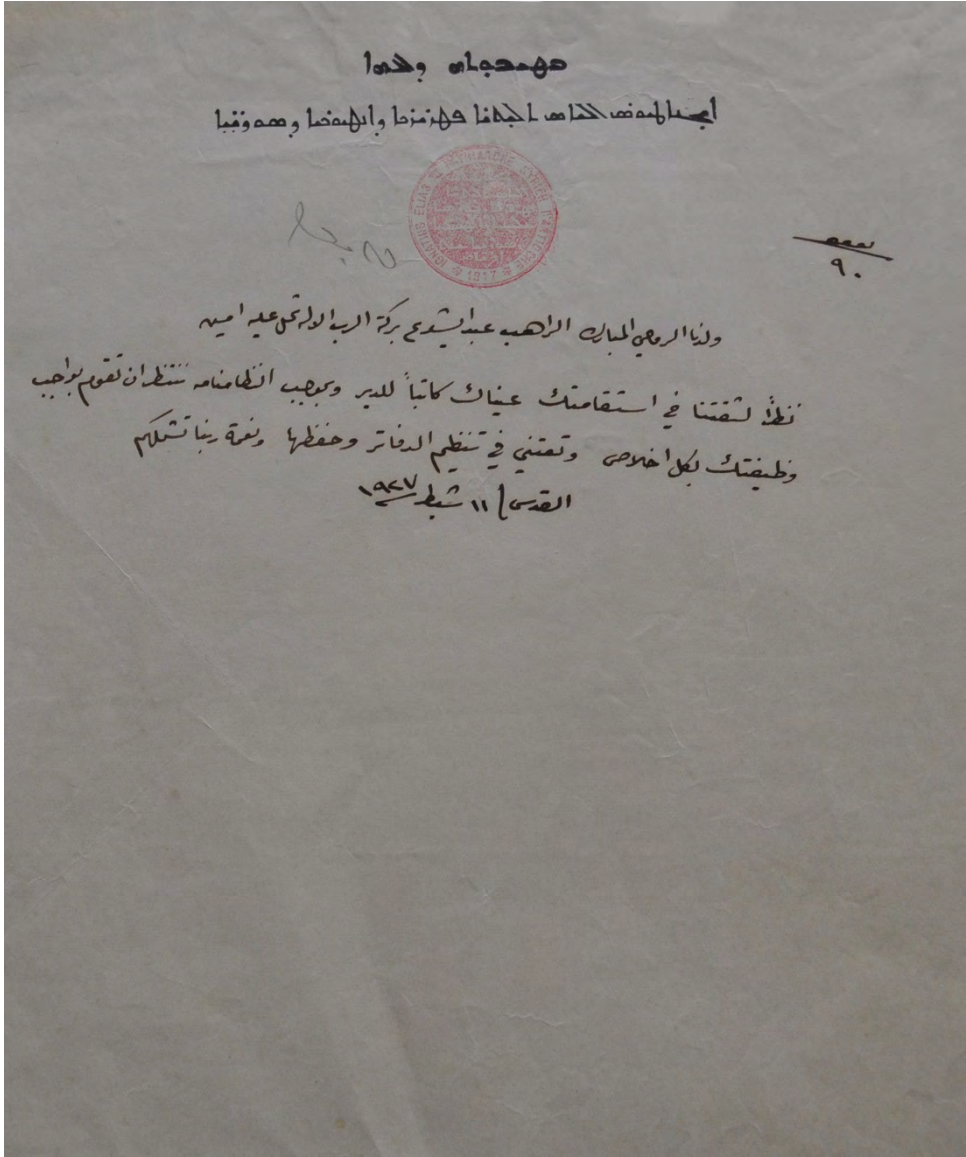 ܒܛܝܒܘܬܗ ܕܐܠܗܐ
ܐܝܓܢܐܛܝܘܣ ܐܠܝܐܣ ܬܠܝܬܝܐ ܦܛܪܝܪܟܐ ܕܐܢܛܝܘܟܝܐ ܕܣܘܪܝܝܐ
IGNATIUS ELIAS III PATRIARCHE SYRIEN D'ANTIOCHE
1917
٩٠
ولدنا الروحي المبارك الراهب عبد يشوع بركة الرب الاله تحل عليه امين
نظراً لثقتنا في استقامتك عيناك كاتباً للدير وبموجب النظامنامه ننتظر ان تقوم بواجب
وظيفتك بكل اخلاص وتعتني في تنظيم الدفاتر وحفظها ونعمة ربنا تشملكم
القدس ١١ شباط ١٩٢٧